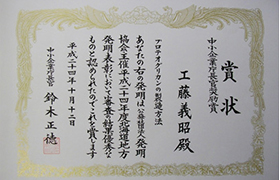 賞状
中小企業庁長官奨励賞
工藤義昭殿
プロテオグリカンの製造方法
あなたの右の発明は公益社団法人発明
協会主催平成二十四年度北海道地方
発明表彰において審査の結果優秀な
ものと認められたのでこれを賞します
平成二十四年十月十二日
中小企業庁長官 鈴木正徳